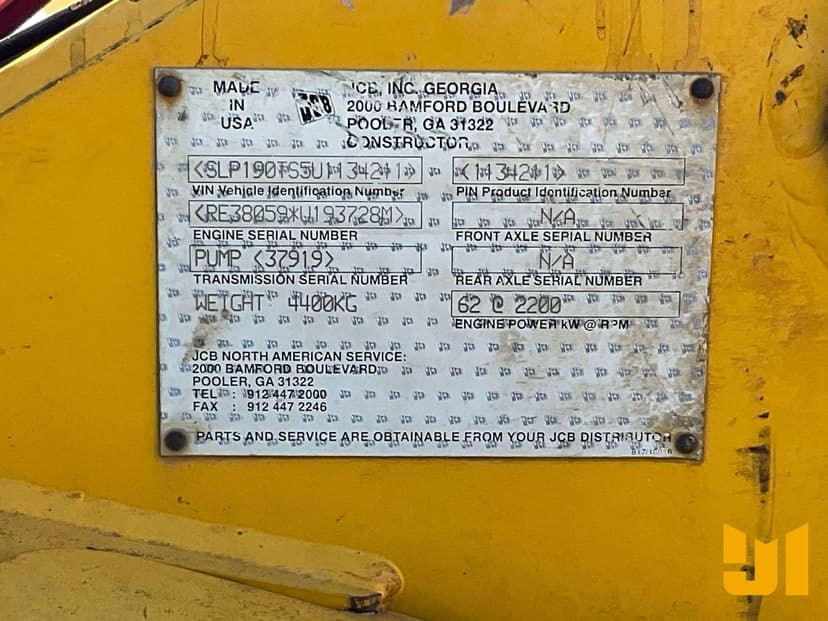 MADE
IN
USA
JCB
JCB, INC. GEORGIA
2000 BAMFORD BOULEVARD
POOLER, GA 31322
CONSTRUCTOR
<SLP190TS5U1134211>
<1134211>
VIN Vehicle Identification Number
PIN Product Identification Number
<RE38059*U193728M>
N/A
ENGINE SERIAL NUMBER
FRONT AXLE SERIAL NUMBER
PUMP <37919>
N/A
TRANSMISSION SERIAL NUMBER
REAR AXLE SERIAL NUMBER
WEIGHT 4400KG
62 @ 2200
ENGINE POWER kW @ RPM
JCB NORTH AMERICAN SERVICE:
2000 BAMFORD BOULEVARD,
POOLER, GA 31322
TEL : 912 447 2000
FAX : 912 447 2246
PARTS AND SERVICE ARE OBTAINABLE FROM YOUR JCB DISTRIBUTOR